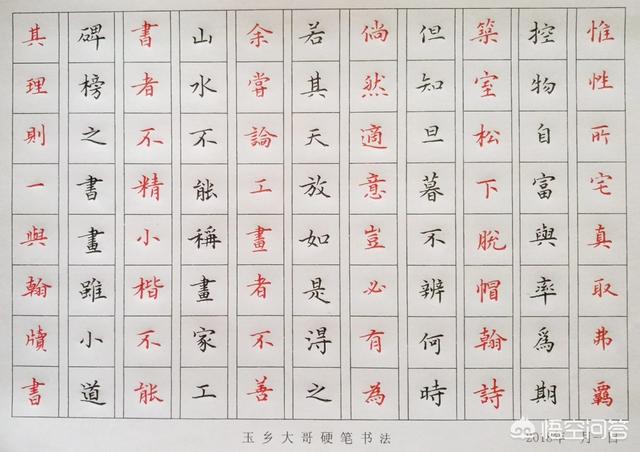 惟性所宅真取弗羈
控物自富與率爲期
築室松下脫帽翰詩
但知旦暮不辨何時
倘然適意豈必有為
若其天放如是淂之
余嘗論工畫者不善
山水不能稱畫家工
書者不精小楷不能
碑榜之書畫雖小道
其理則一與翰牘書
玉乡大哥硬笔书法
2018年 月 日
悟空问答